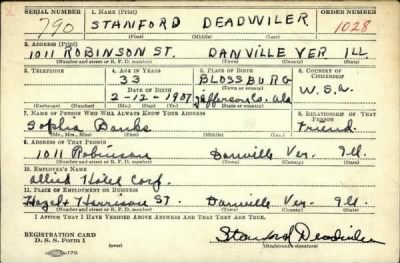 SERIAL NUMBER 1. NAME (Print) ORDER NUMBER
790 STANFORD DEADWILER 1028
(First) (Middle) (Last)
2. ADDRESS (Print)
1011 ROBINSON ST. DANVILLE VER ILL.
(Number and street or R. F. D. number) (Town) (County) (State)
3. TELEPHONE 4. AGE IN YEARS 5. PLACE OF BIRTH 6. COUNTRY OF CITIZENSHIP
33 BLOSSBURG
DATE OF BIRTH (Town or county)
2-12-1907 Jefferson Co. Ala U.S.A.
(Exchange) (Number) (Mo.) (Day) (Yr.) (State or country)
7. NAME OF PERSON WHO WILL ALWAYS KNOW YOUR ADDRESS 8. RELATIONSHIP OF THAT PERSON
Sophia Banks Friend
(Mr., Mrs., Miss) (First) (Middle) (Last)
9. ADDRESS OF THAT PERSON
1011 Robinson Danville Ver. Ill.
(Number and street or R. F. D. number) (Town) (County) (State)
10. EMPLOYER'S NAME
Allied Hotel Corp.
11. PLACE OF EMPLOYMENT OR BUSINESS
Hazel & Harrison ST. Danville Ver. Ill.
(Number and street or R. F. D. number) (Town) (County) (State)
I AFFIRM THAT I HAVE VERIFIED ABOVE ANSWERS AND THAT THEY ARE TRUE.
REGISTRATION CARD
D. S. S. Form 1 Stanford Deadwiler
(Registrant's signature)